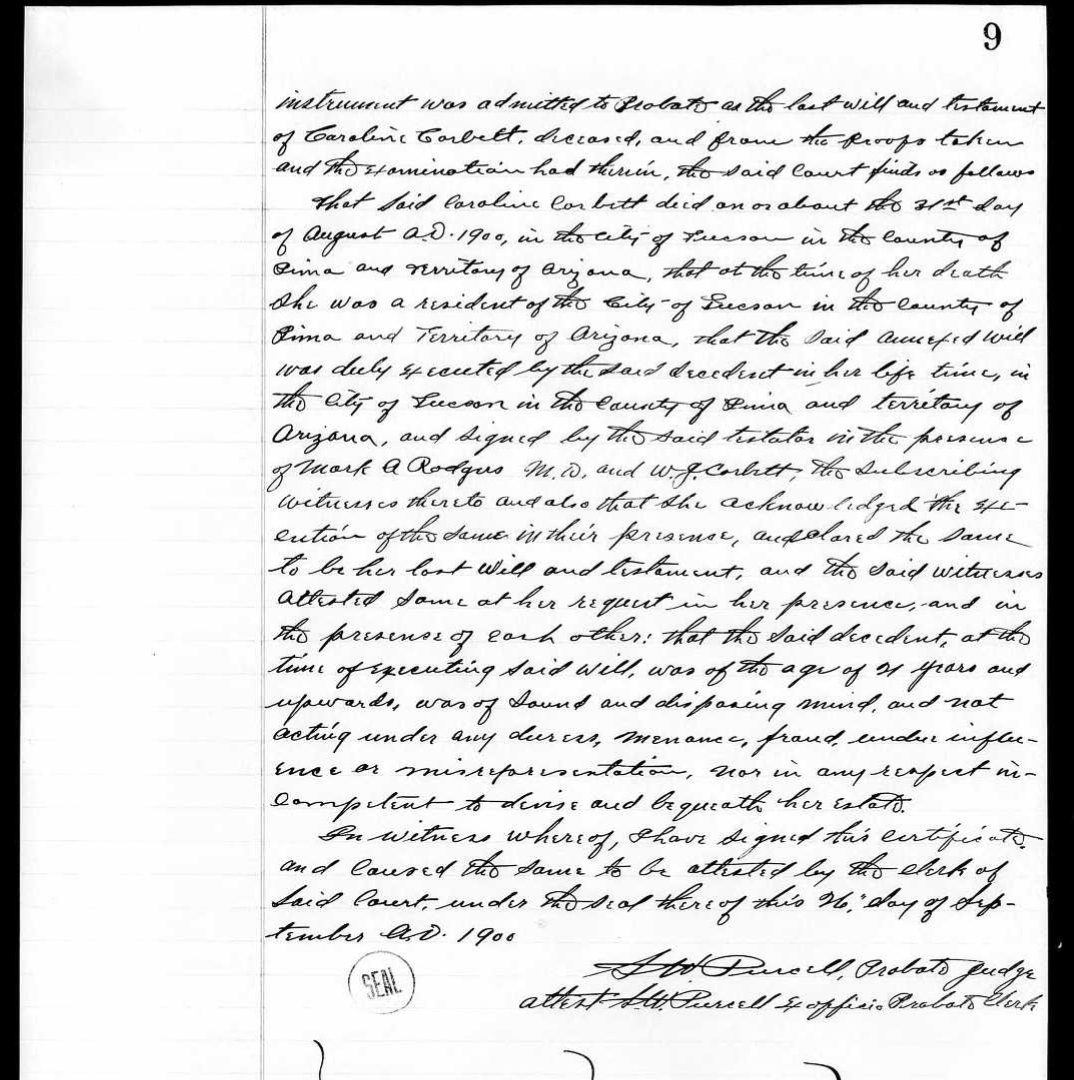 9
instrument was admitted to Probate as the last will and testament
of Caroline Corbett, deceased, and from the proofs taken
and the examination had therein, the said Court finds as follows
That said Caroline Corbett died on or about the 31st day
of August A.D. 1900, in the City of Tucson in the County of
Pima and Territory of Arizona, that at the time of her death
she was a resident of the City of Tucson in the County of
Pima and Territory of Arizona, that the said annexed will
was duly executed by the said decedent in her life time, in
the City of Tucson in the County of Pima and territory of
Arizona, and signed by the said testator in the presence
of Mark A Rodgers M.D. and W.J. Corbett, the subscribing
witnesses thereto and also that she acknowledged the exe-
cution of the same in their presence, and clared the same
to be her last Will and testament, and the said witnesses
attested same at her request in her presence, and in
the presence of each other: that the said decedent, at the
time of executing said will, was of the age of 21 years and
upwards, was of sound and disposing mind, and not
acting under any duress, menance, fraud, undue influ-
ence or misrepresentation, nor in any respect in-
competent to devise and bequeath her estate.
In witness whereof, I have signed this certificate,
and caused the same to be attested by the Clerk of
said Court, under the seal thereof this 26" day of Sep-
tember A.D. 1900
SEAL
S W Purcell, Probate Judge
attest S.W. Purcell Ex officio Probate Clerk